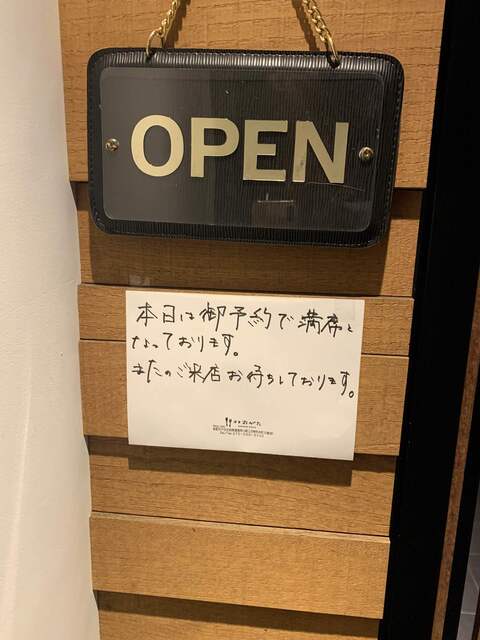 OPEN
本日は御予約で満席と
なっております。
またのご来店お待ちしております。